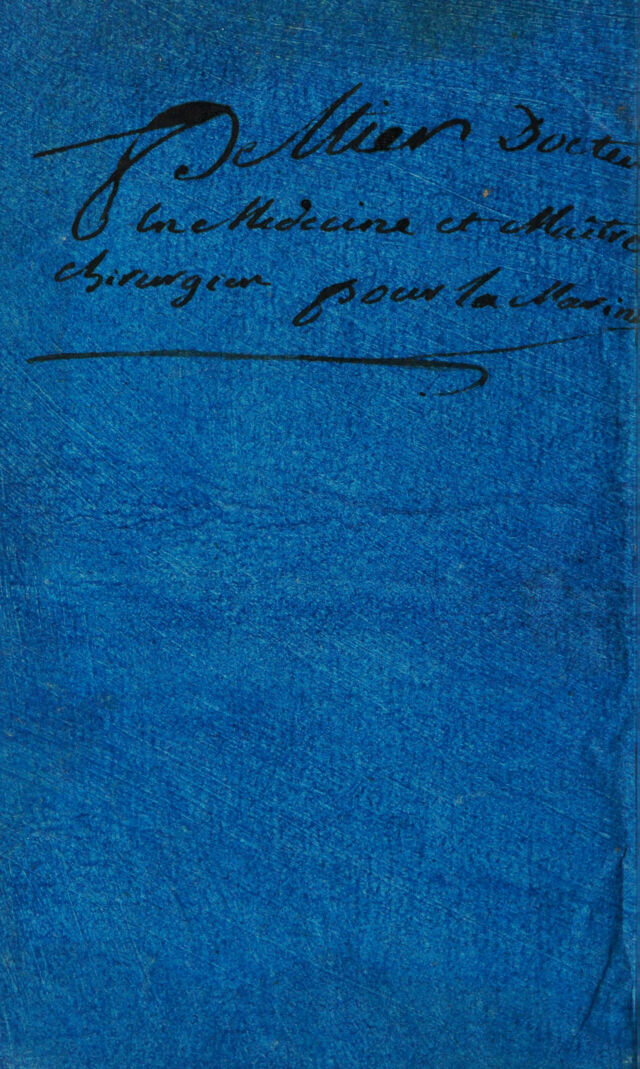 De Mier Docteu
en Medecine et Maitre
chirurgien pour la Marine